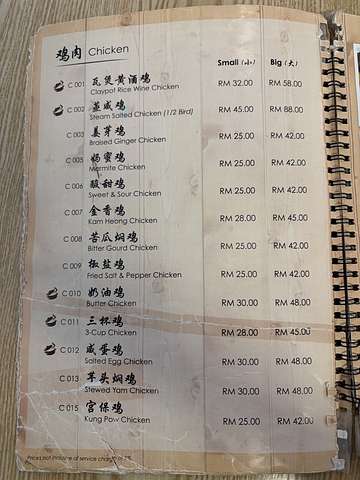 鸡肉 Chicken Small (小) Big (大)
C 001 瓦煲黄酒鸡 RM 32.00 RM 58.00
Claypot Rice Wine Chicken
C 002 蒸咸鸡 RM 45.00 RM 88.00
Steam Salted Chicken (1/2 Bird)
C 003 姜芽鸡 RM 25.00 RM 42.00
Braised Ginger Chicken
C 005 奶蜜鸡 RM 25.00 RM 42.00
Marmite Chicken
C 006 酸甜鸡 RM 25.00 RM 42.00
Sweet & Sour Chicken
C 007 金香鸡 RM 28.00 RM 45.00
Kam Heong Chicken
C 008 苦瓜焖鸡 RM 25.00 RM 42.00
Bitter Gourd Chicken
C 009 椒盐鸡 RM 25.00 RM 42.00
Fried Salt & Pepper Chicken
C 010 奶油鸡 RM 30.00 RM 48.00
Butter Chicken
C 011 三杯鸡 RM 28.00 RM 45.00
3-Cup Chicken
C 012 咸蛋鸡 RM 30.00 RM 48.00
Salted Egg Chicken
C 013 芋头焖鸡 RM 30.00 RM 48.00
Stewed Yam Chicken
C 015 宫保鸡 RM 25.00 RM 42.00
Kung Pow Chicken
Prices not inclusive of service charge